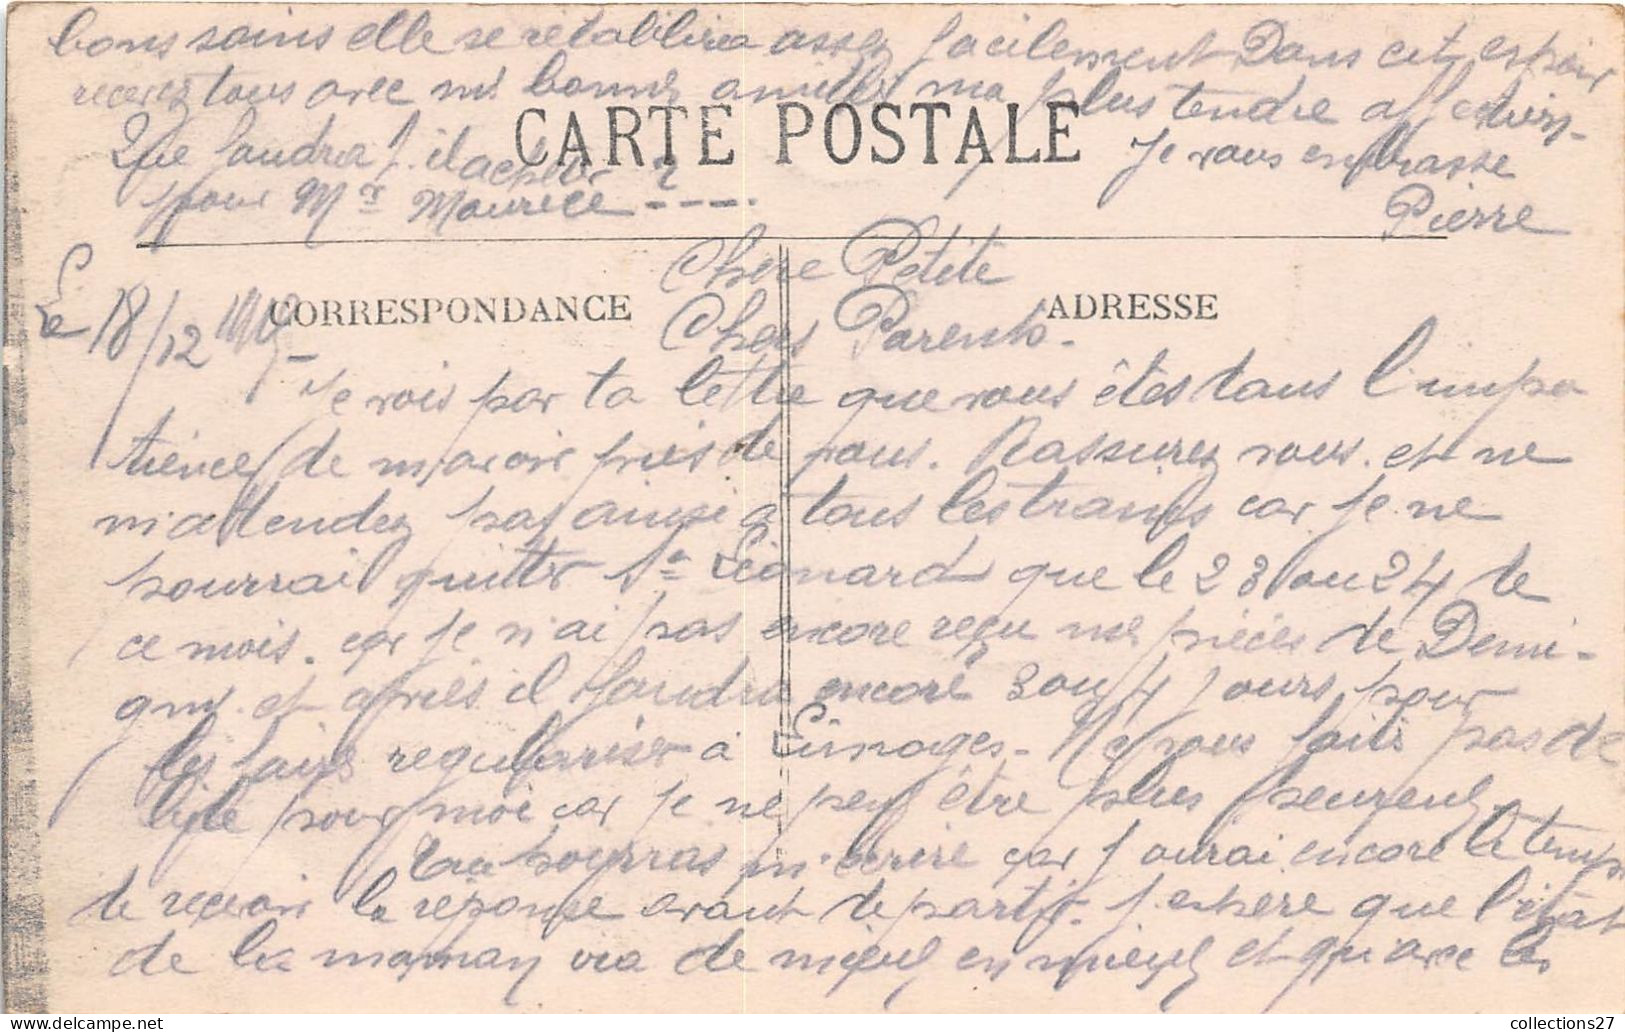 bons soins elle se retablira assez facilement Dans cet espoir
recevez tous avec mes bonnes amitiés ma plus tendre affection.
CARTE POSTALE
Que faudra t il acheter
Je vous embrasse
pour Mr Maurice ? ----
Pierre
Chere Petite
CORRESPONDANCE
ADRESSE
Chers Parents.
Le 18/12
Je vois par ta lettre que vous êtes tous l'impa
tience de m'avoir près de vous. Rassurez vous. et ne
m'attendez pas ainsi a tous les trains car je ne
pourrai quitter St Léonard que le 23 ou 24 de
ce mois. car je n'ai pas encore reçu mes pièces de Demi-
gny. et après il faudra encore 3 ou 4 jours pour
les faire regulariser à Limoges. Ne vous faites pas de
bile pour moi car je ne peux être plus heureux
Tu pourras m'écrire car j aurai encore le temps
de recevoir la réponse avant de partir. J'espère que l'état
de la maman va de mieux en mieux et qu'avec les
collections27